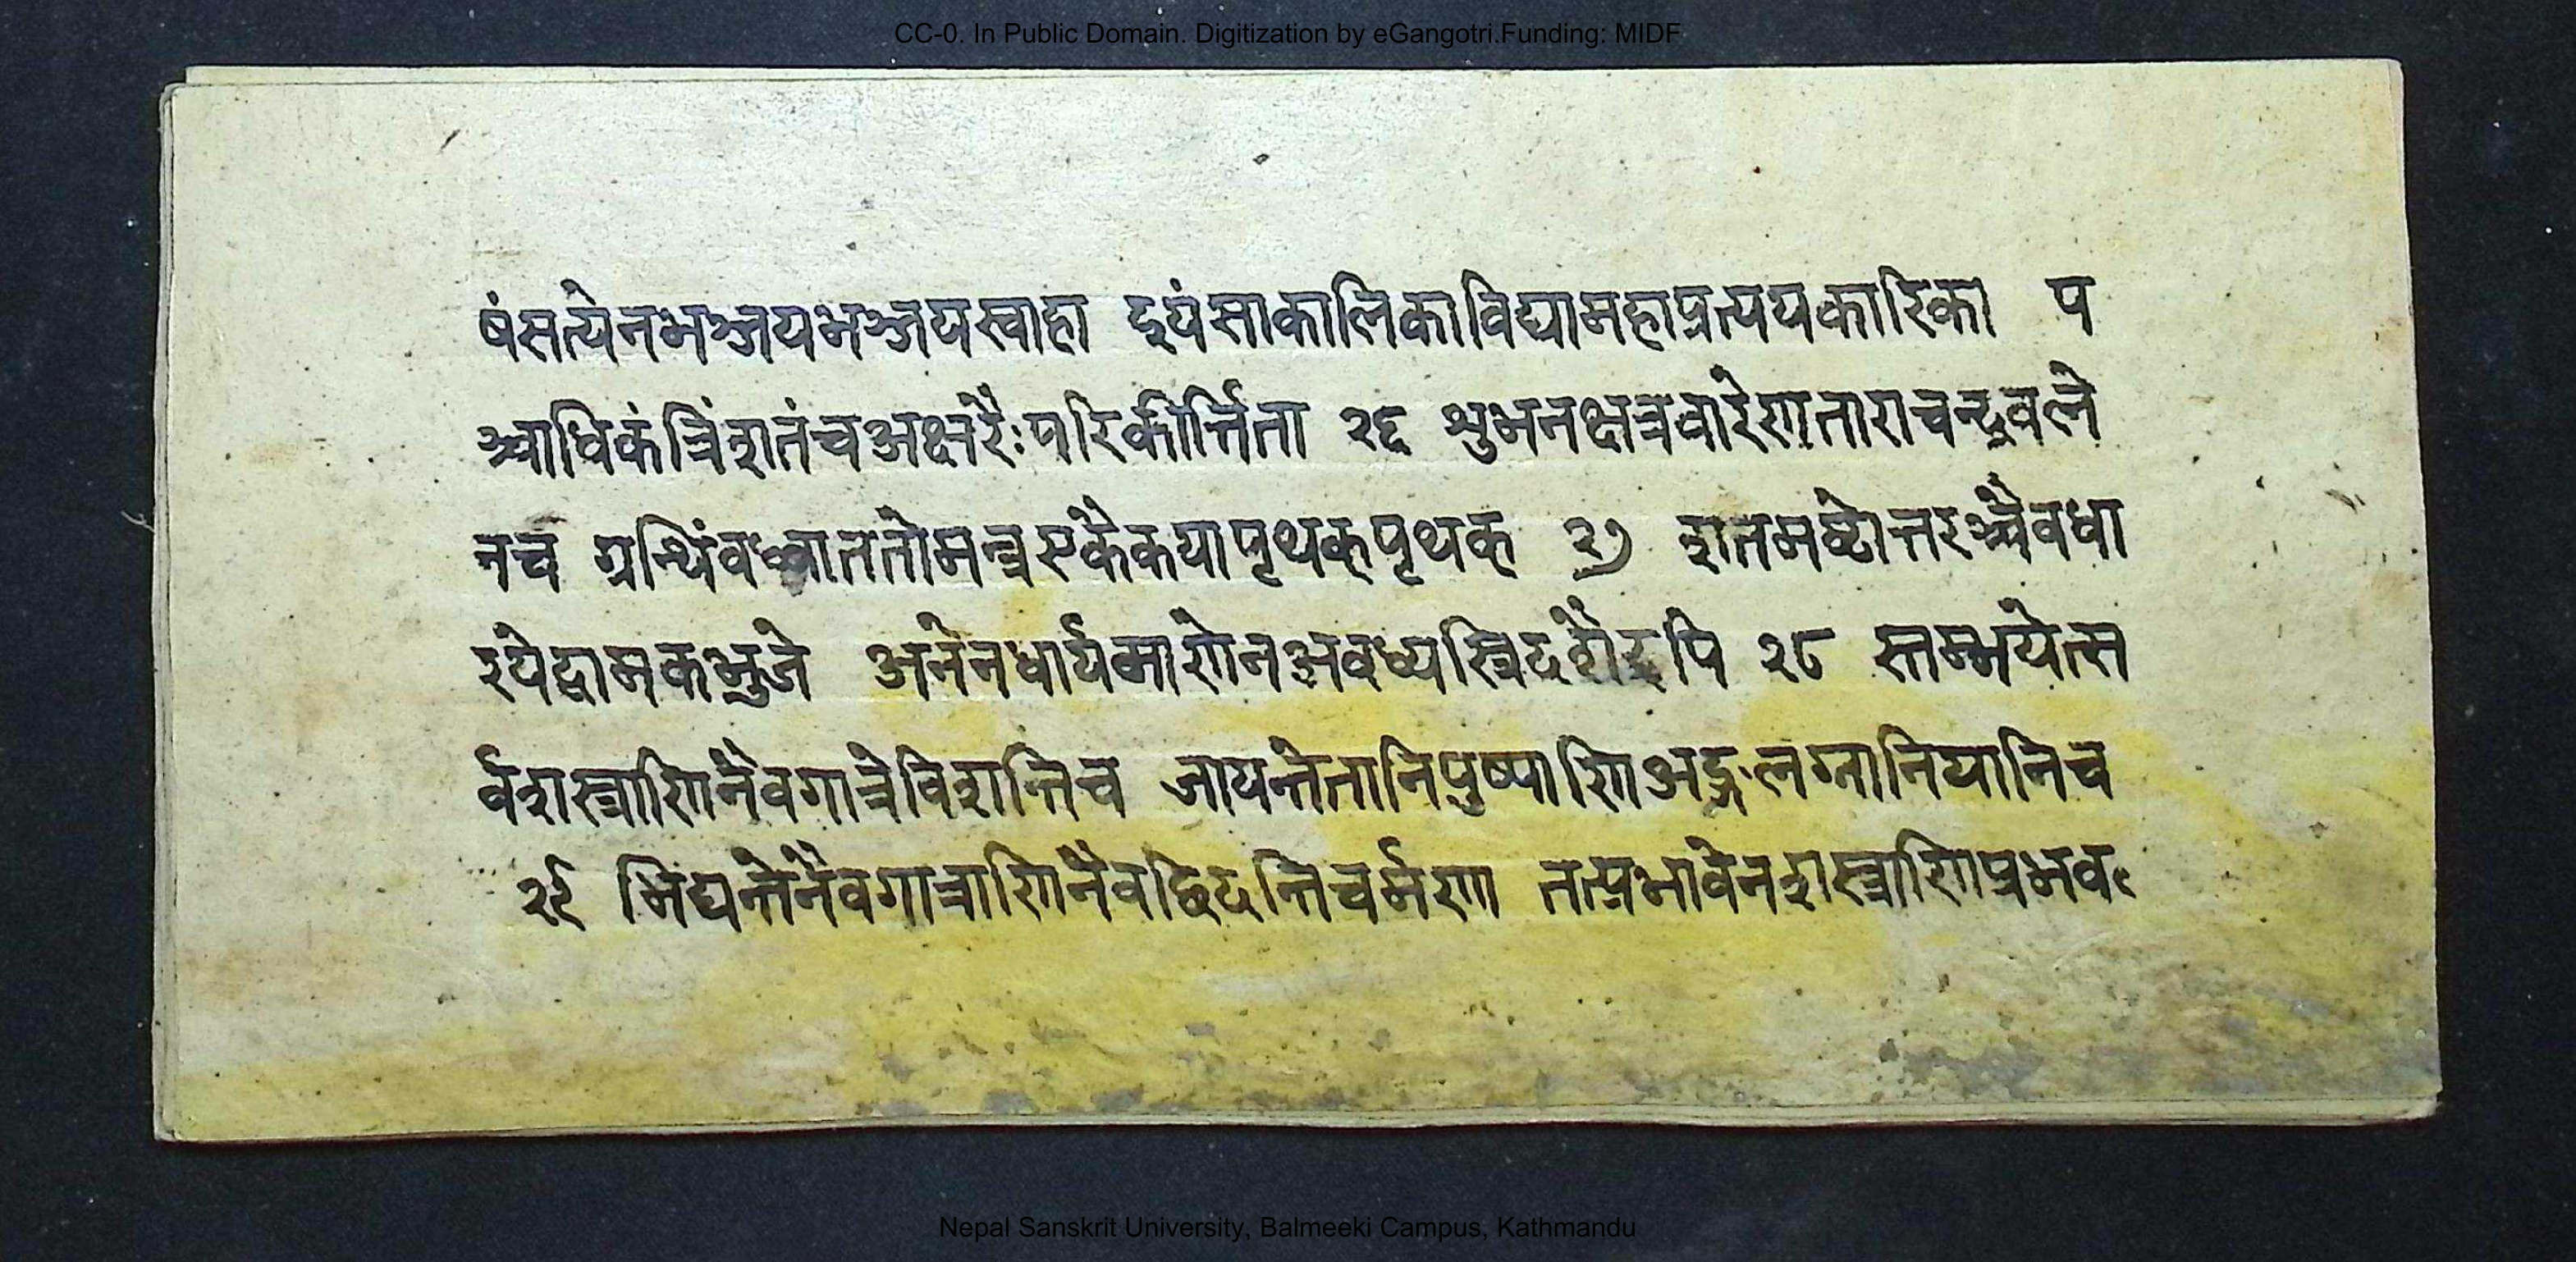 CC-0. In Public Domain. Digitization by eGangotri.Funding: MIDF
षंसत्येनभञ्जयभञ्जयस्वाहा इयंसाकालिकाविद्यामहाप्रत्ययकारिका प
ञ्चाधिकंत्रिंशतंचअक्षरैःपरिकीर्त्तिता २६ शुभनक्षत्रवारेणताराचन्द्रवले
नच ग्रन्थिंवध्वाततोमन्त्रएकैकयापृथक्पृथक् २७ शतमष्टोत्तरञ्चैवधा
रयेद्वामकभुजे अनेनधार्यमाणेनअवध्यस्त्रिदशैरपि २८ स्तम्भयेत्स
र्वशस्त्राणिनैवगात्रेविशन्तिच जायन्तेतानिपुष्पाणिअङ्गलग्नानियानिच
२९ भिद्यन्तेनैवगात्राणिनैवछिदन्तिचर्मणा तत्प्रभावेनशस्त्राणिप्रभव
Nepal Sanskrit University, Balmeeki Campus, Kathmandu